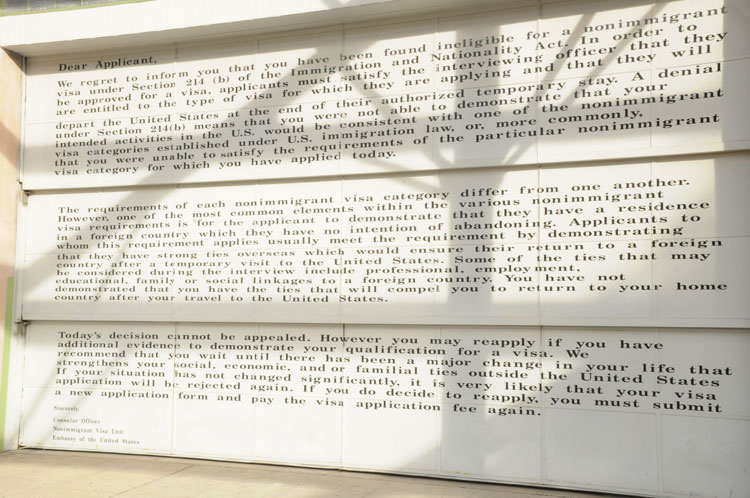 Dear Applicant,
We regret to inform you that you have been found ineligible for a nonimmigrant
visa under Section 214 (b) of the Immigration and Nationality Act. In order to
be approved for a visa, applicants must satisfy the interviewing officer that they
are entitled to the type of visa for which they are applying and that they will
depart the United States at the end of their authorized temporary stay. A denial
under Section 214(b) means that you were not able to demonstrate that your
intended activities in the U.S. would be consistent with one of the nonimmigrant
visa categories established under U.S. immigration law, or, more commonly,
that you were unable to satisfy the requirements of the particular nonimmigrant
visa category for which you have applied today.
The requirements of each nonimmigrant visa category differ from one another.
However, one of the most common elements within the various nonimmigrant
visa requirements is for the applicant to demonstrate that they have a residence
in a foreign country which they have no intention of abandoning. Applicants to
whom this requirement applies usually meet the requirement by demonstrating
that they have strong ties overseas which would ensure their return to a foreign
country after a temporary visit to the United States. Some of the ties that may
be considered during the interview include professional, employment,
educational, family or social linkages to a foreign country. You have not
demonstrated that you have the ties that will compel you to return to your home
country after your travel to the United States.
Today's decision cannot be appealed. However you may reapply if you have
additional evidence to demonstrate your qualification for a visa. We
recommend that you wait until there has been a major change in your life that
strengthens your social, economic, and/or familial ties outside the United States
If your situation has not changed significantly, it is very likely that your visa
application will be rejected again. If you do decide to reapply, you must submit
a new application form and pay the visa application fee again.
Sincerely,
Consular Officer
Nonimmigrant Visa Unit
Embassy of the United States